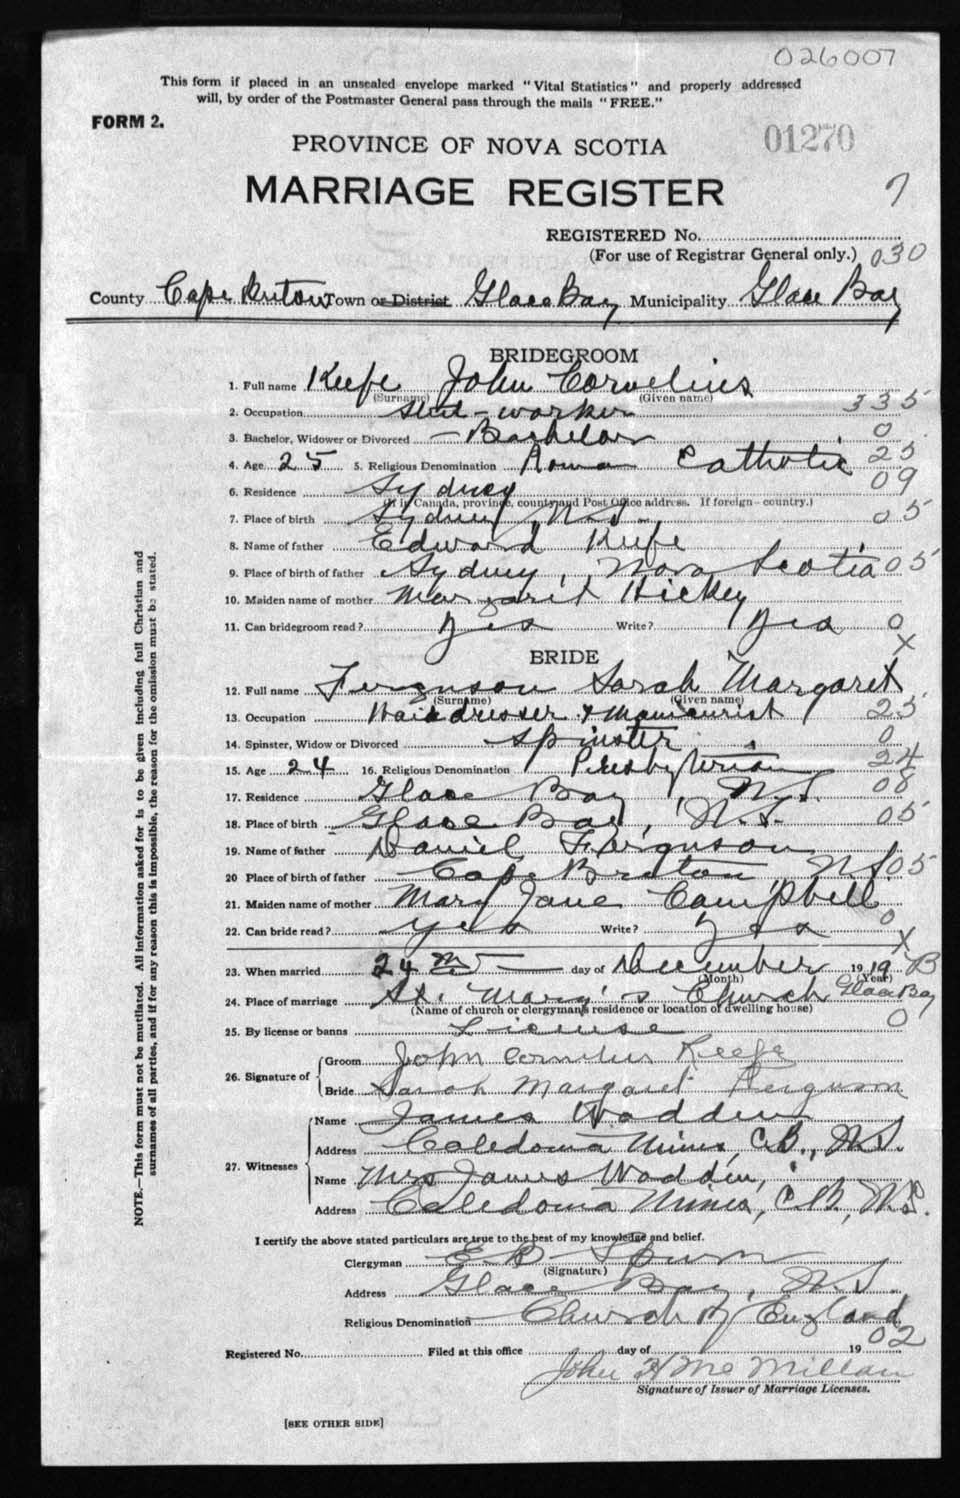 026007
This form if placed in an unsealed envelope marked "Vital Statistics" and properly addressed
will, by order of the Postmaster General pass through the mails "FREE."
FORM 2.
01270
PROVINCE OF NOVA SCOTIA
MARRIAGE REGISTER
7
REGISTERED No.
(For use of Registrar General only.) 030
County Cape Breton Town or District Glace Bay Municipality Glace Bay
BRIDEGROOM
1. Full name Keefe John Cornelius
(Surname) (Given name)
2. Occupation Steel-worker 335
3. Bachelor, Widower or Divorced Bachelor 0
4. Age 25 5. Religious Denomination Roman Catholic 25
6. Residence Sydney 09
(If in Canada, province, county and Post Office address. If foreign—country.)
7. Place of birth Sydney N.S. 05
8. Name of father Edward Keefe
9. Place of birth of father Sydney, Nova Scotia 05
10. Maiden name of mother Margaret Hickey
11. Can bridegroom read? Yes Write? Yes 0
X
BRIDE
12. Full name Ferguson Sarah Margaret
(Surname) (Given name)
13. Occupation Hairdresser & Manicurist 25
14. Spinster, Widow or Divorced Spinster 0
15. Age 24 16. Religious Denomination Presbyterian 24
17. Residence Glace Bay, N.S. 08
18. Place of birth Glace Bay, N.S. 05
19. Name of father Daniel Ferguson
20 Place of birth of father Cape Breton N.S. 05
21. Maiden name of mother Mary Jane Campbell
22. Can bride read? Yes Write? Yes 0
X
23. When married 24 day of December 1919 B
(Month) (Year)
24. Place of marriage St. Mary's Church Glace Bay
(Name of church or clergyman's residence or location of dwelling house)
25. By license or banns License 0
26. Signature of
Groom John Cornelius Keefe
Bride Sarah Margaret Ferguson
27. Witnesses
Name James Wadden
Address Caledonia Mines, C.B., N.S.
Name Mrs James Wadden,
Address Caledonia Mines, C.B., N.S.
I certify the above stated particulars are true to the best of my knowledge and belief.
Clergyman E B Spurr
(Signature)
Address Glace Bay, N.S.
Religious Denomination Church of England
02
Registered No. Filed at this office day of 19
John H McMillan
Signature of Issuer of Marriage Licenses.
[SEE OTHER SIDE]
NOTE.—This form must not be mutilated. All information asked for is to be given including full Christian and
surnames of all parties, and if for any reason this is impossible, the reason for the omission must be stated.